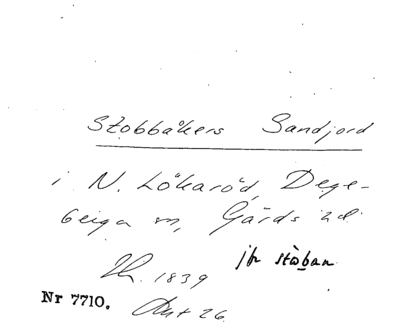 Stobbåkers Sandjord
i N. Lökaröd, Dege-
berga sn, Gärds hd.
Lh. 1839
jfr stòban
Nr 7710.
Akt 26